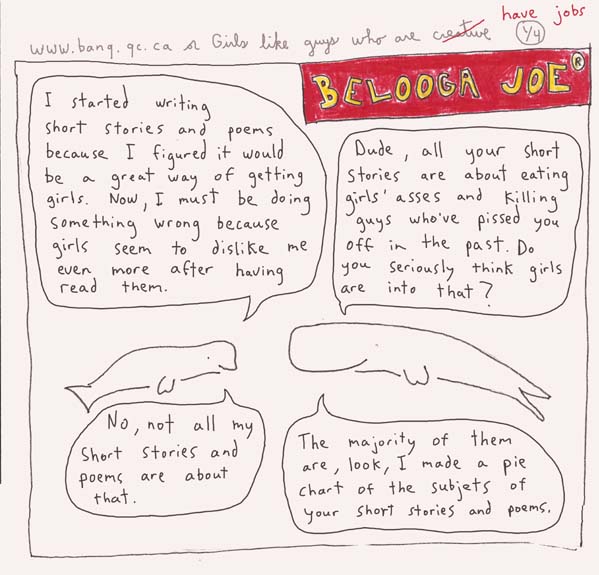 have jobs
www.banq.qc.ca or Girls like guys who are creative 1/4
BELOOGA JOE®
I started writing
short stories and poems
because I figured it would
be a great way of getting
girls. Now, I must be doing
something wrong because
girls seem to dislike me
even more after having
read them.
Dude, all your short
stories are about eating
girls' asses and killing
guys who've pissed you
off in the past. Do
you seriously think girls
are into that?
No, not all my
short stories and
poems are about
that.
The majority of them
are, look, I made a pie
chart of the subjets of
your short stories and poems.